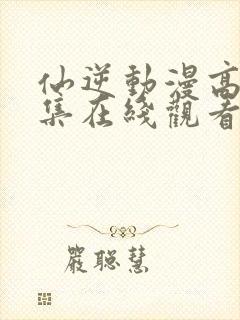 仙逆動漫高
集在綫觀看
嚴聰慧